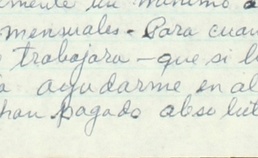 mente un mínimo a
mensuales - Para cuan
trabajara - que si l
a ayudarme en al
han pagado absolut